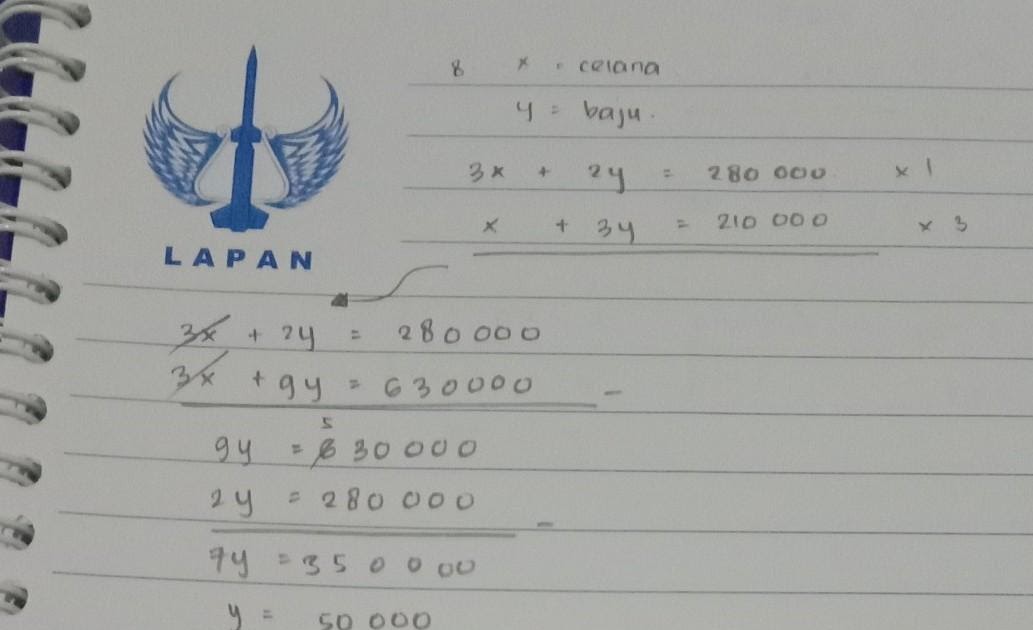 8 x = celana
y = baju.
3x + 2y = 280 000 x 1
x + 3y = 210 000 x 3
LAPAN
3x + 2y = 280000
3x + 9y = 630000 -
5
9y = 630000
2y = 280000 -
7y = 350000
y = 50 000